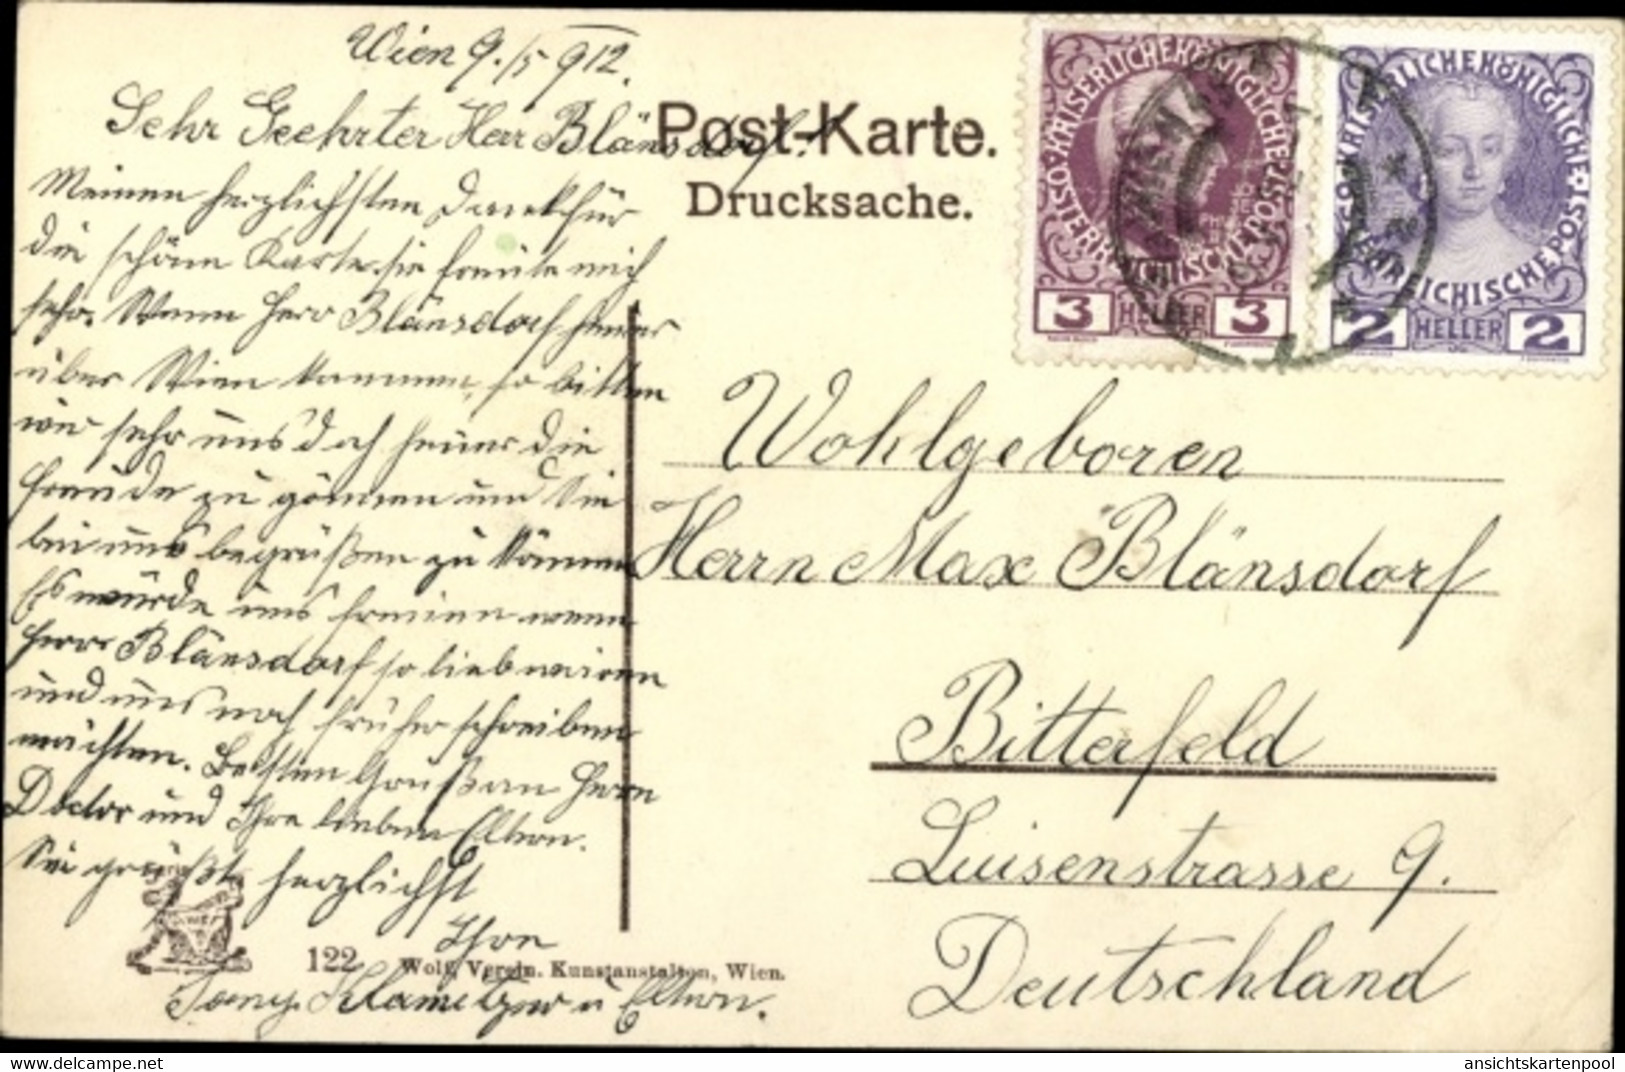 Wien 9./5 912.
Sehr Geehrter Herr Blänsdorf!
Meinen herzlichsten Dank für
die schöne Karte sie freute mich
sehr. Wenn Herr Blänsdorf heuer
über Wien kommen, so bitten
wir sehr uns doch heuer die
Freude zu gönnen und Sie
bei uns begrüßen zu können
Es würde uns freuen wenn
Herr Blänsdorf so lieb wären
und uns noch früher schreiben
möchten. Besten Gruß an Herrn
Doctor und Ihre lieben Eltern.
Sie grüßt herzlichst
Ihre
Klametzer u Eltern.
Post-Karte.
Drucksache.
KAISERLICHE KÖNIGLICHE ÖSTERREICHISCHE POST
3 HELLER 3
KAISERLICHE KÖNIGLICHE ÖSTERREICHISCHE POST
2 HELLER 2
Wohlgeboren
Herrn Max Blänsdorf
Bitterfeld
Luisenstrasse 9.
Deutschland
122 Wolf, Verein. Kunstanstalten, Wien.
https://www.delcampe.net
ansichtskartenpool